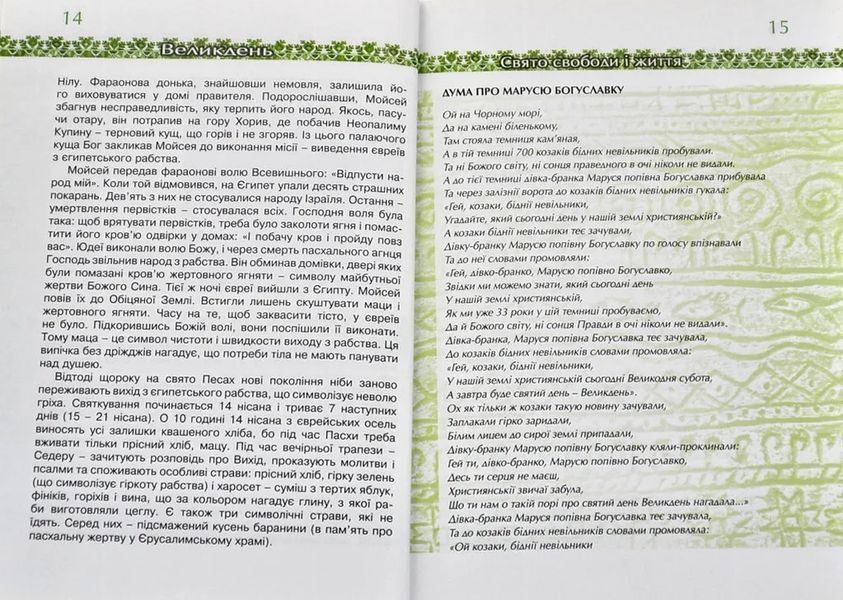 14
Великдень
Нілу. Фараонова донька, знайшовши немовля, залишила йо-
го виховуватися у домі правителя. Подорослішавши, Мойсей
збагнув несправедливість, яку терпить його народ. Якось, пасу-
чи отару, він потрапив на гору Хорив, де побачив Неопалиму
Купину – терновий кущ, що горів і не згоряв. Із цього палаючого
куща Бог закликав Мойсея до виконання місії – виведення євреїв
з єгипетського рабства.
Мойсей передав фараонові волю Всевишнього: «Відпусти на-
род мій». Коли той відмовився, на Єгипет упали десять страшних
покарань. Дев’ять з них не стосувалися народу Ізраїля. Остання –
умертвлення первістків – стосувалася всіх. Господня воля була
така: щоб врятувати первістків, треба було заколоти ягня і помас-
тити його кров’ю одвірки у домах: «І побачу кров і пройду повз
вас». Юдеї виконали волю Божу, і через смерть пасхального агнця
Господь звільнив народ з рабства. Він обминав домівки, двері яких
були помазані кров’ю жертовного ягняти – символу майбутньої
жертви Божого Сина. Тієї ж ночі євреї вийшли з Єгипту. Мойсей
повів їх до Обіцяної Землі. Встигли лишень скуштувати маци і
жертовного ягняти. Часу на те, щоб заквасити тісто, у євреїв
не було. Підкорившись Божій волі, вони поспішили її виконати.
Тому маца – це символ чистоти і швидкости виходу з рабства. Ця
випічка без дріжджів нагадує, що потреби тіла не мають панувати
над душею.
Відтоді щороку на свято Песах нові покоління ніби заново
переживають вихід з єгипетського рабства, що символізує неволю
гріха. Святкування починається 14 нісана і триває 7 наступних
днів (15 – 21 нісана). О 10 годині 14 нісана з єврейських осель
виносять усі залишки квашеного хліба, бо під час Пасхи треба
вживати тільки прісний хліб, мацу. Під час вечірньої трапези –
Седеру – зачитують розповідь про Вихід, проказують молитви і
псалми та споживають особливі страви: прісний хліб, гірку зелень
(що символізує гіркоту рабства) і харосет – суміш з тертих яблук,
фініків, горіхів і вина, що за кольором нагадує глину, з якої ра-
би виготовляли цеглу. Є також три символічні страви, які не
їдять. Серед них – підсмажений кусень баранини (в пам’ять про
пасхальну жертву у Єрусалимському храмі).
15
Свято свободи і життя
ДУМА ПРО МАРУСЮ БОГУСЛАВКУ
Ой на Чорному морі,
Да на камені біленькому,
Там стояла темниця кам’яная,
А в тій темниці 700 козаків бідних невільників пробували.
Та ні Божого світу, ні сонця праведного в очі ніколи не видали.
А до тієї темниці дівка-бранка Маруся попівна Богуславка прибувала
Та через залізнії ворота до козаків бідних невільників гукала:
«Гей, козаки, біднії невільники,
Угадайте, який сьогодні день у нашій землі християнській?»
А козаки біднії невільники теє зачували,
Дівку-бранку Марусю попівну Богуславку по голосу впізнавали
Та до неї словами промовляли:
«Гей, дівко-бранко, Марусю попівно Богуславко,
Звідки ми можемо знати, який сьогодні день
У нашій землі християнській,
Як ми уже 33 роки у цій темниці пробуваємо,
Да й Божого світу, ні сонця Правди в очі ніколи не видали».
Дівка-бранка, Маруся попівна Богуславка теє зачувала,
До козаків бідних невільників словами промовляла:
«Гей, козаки, біднії невільники,
У нашій землі християнській сьогодні Великодня субота,
А завтра буде святий день – Великдень».
Ох як тільки ж козаки такую новину зачували,
Заплакали гірко заридали,
Білим лицем до сирої землі припадали,
Дівку-бранку Марусю попівну Богуславку кляли-проклинали:
Гей ти, дівко-бранко, Марусю попівно Богуславко,
Десь ти серця не маєш,
Християнськії звичаї забула,
Що ти нам о такій порі про святий день Великдень нагадала...»
Дівка-бранка Маруся попівна Богуславка теє зачувала,
Та до козаків бідних невільників словами промовляла:
«Ой козаки, біднії невільники